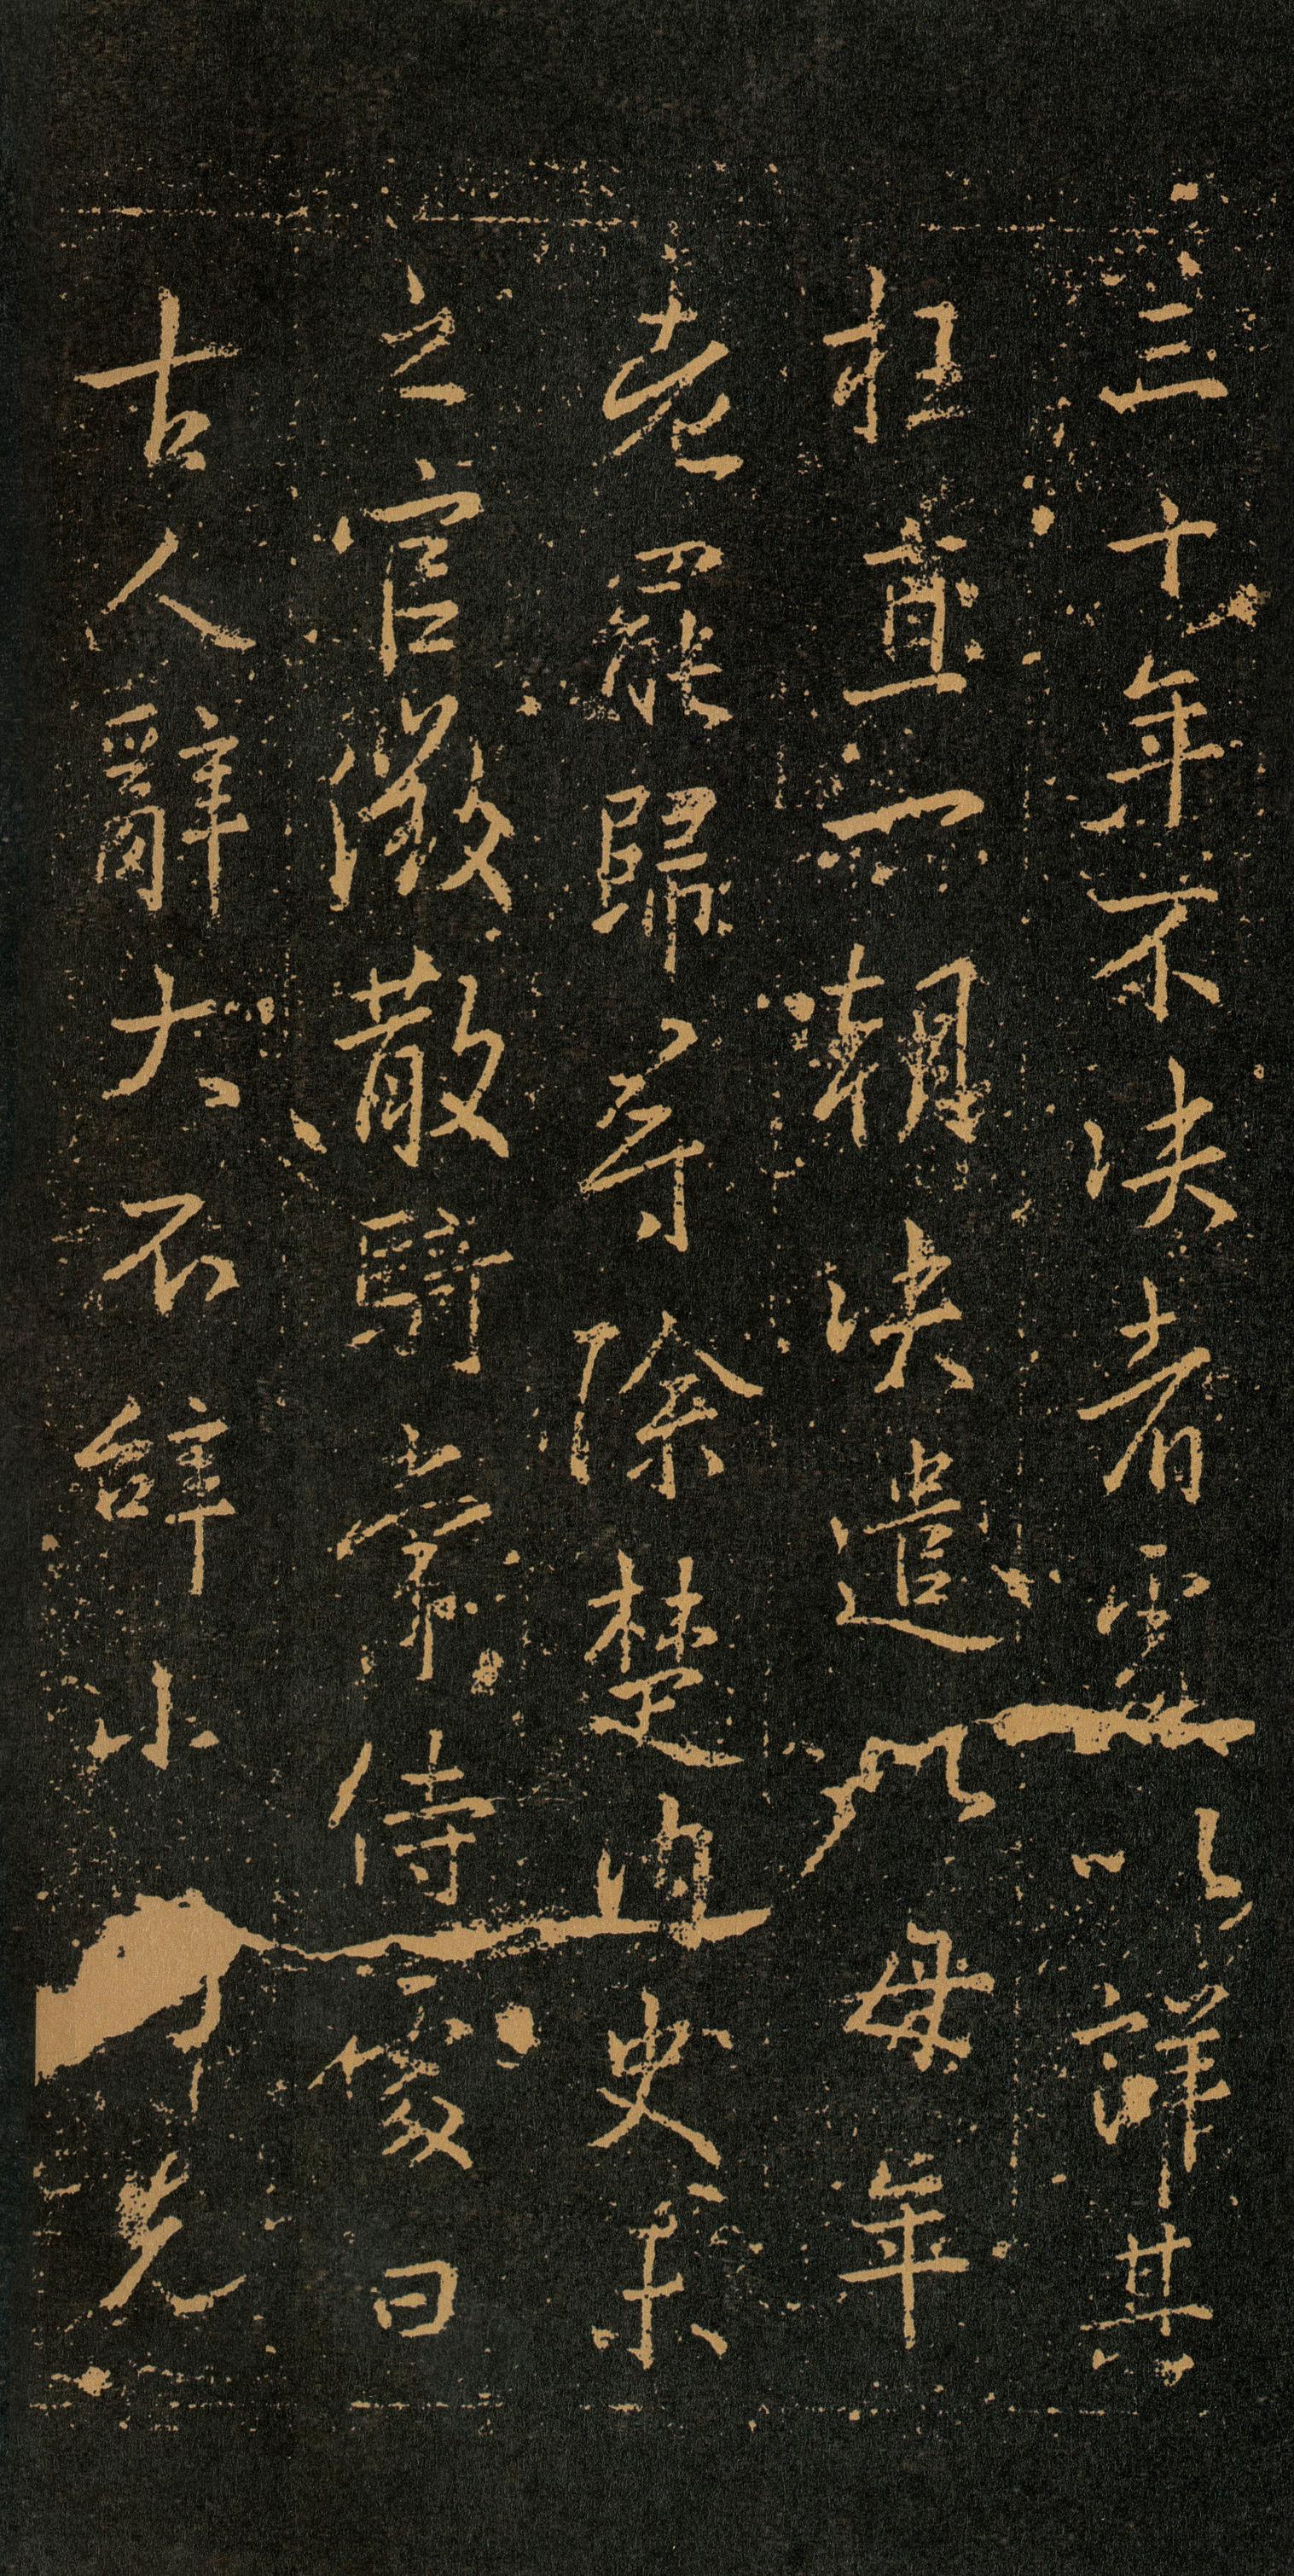 三十年不決者以詳其
枉直一朝決遣以母年
老罷歸尋除楚内史未
之官徵散騎常侍曰
古人辭大不辝小先